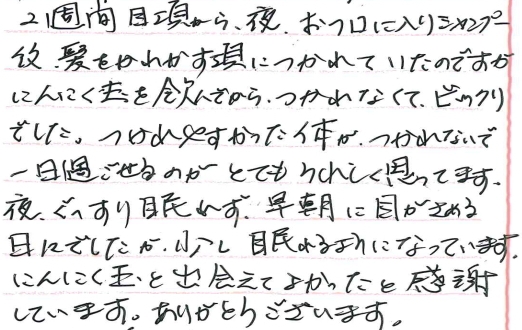 2週間目頃から、夜、おフロに入りシャンプー
後、髪をかわかす頃につかれていたのですが
にんにく玉を飲んでから、つかれなくて、ビックリ
でした。つかれやすかった体が、つかれないで
一日過ごせるのがとてもうれしく思ってます。
夜、ぐっすり眠れず、早朝に目がさめる
日々でしたが、少し眠れるようになっています。
にんにく玉と出会えてよかったと感謝
しています。ありがとうございます。